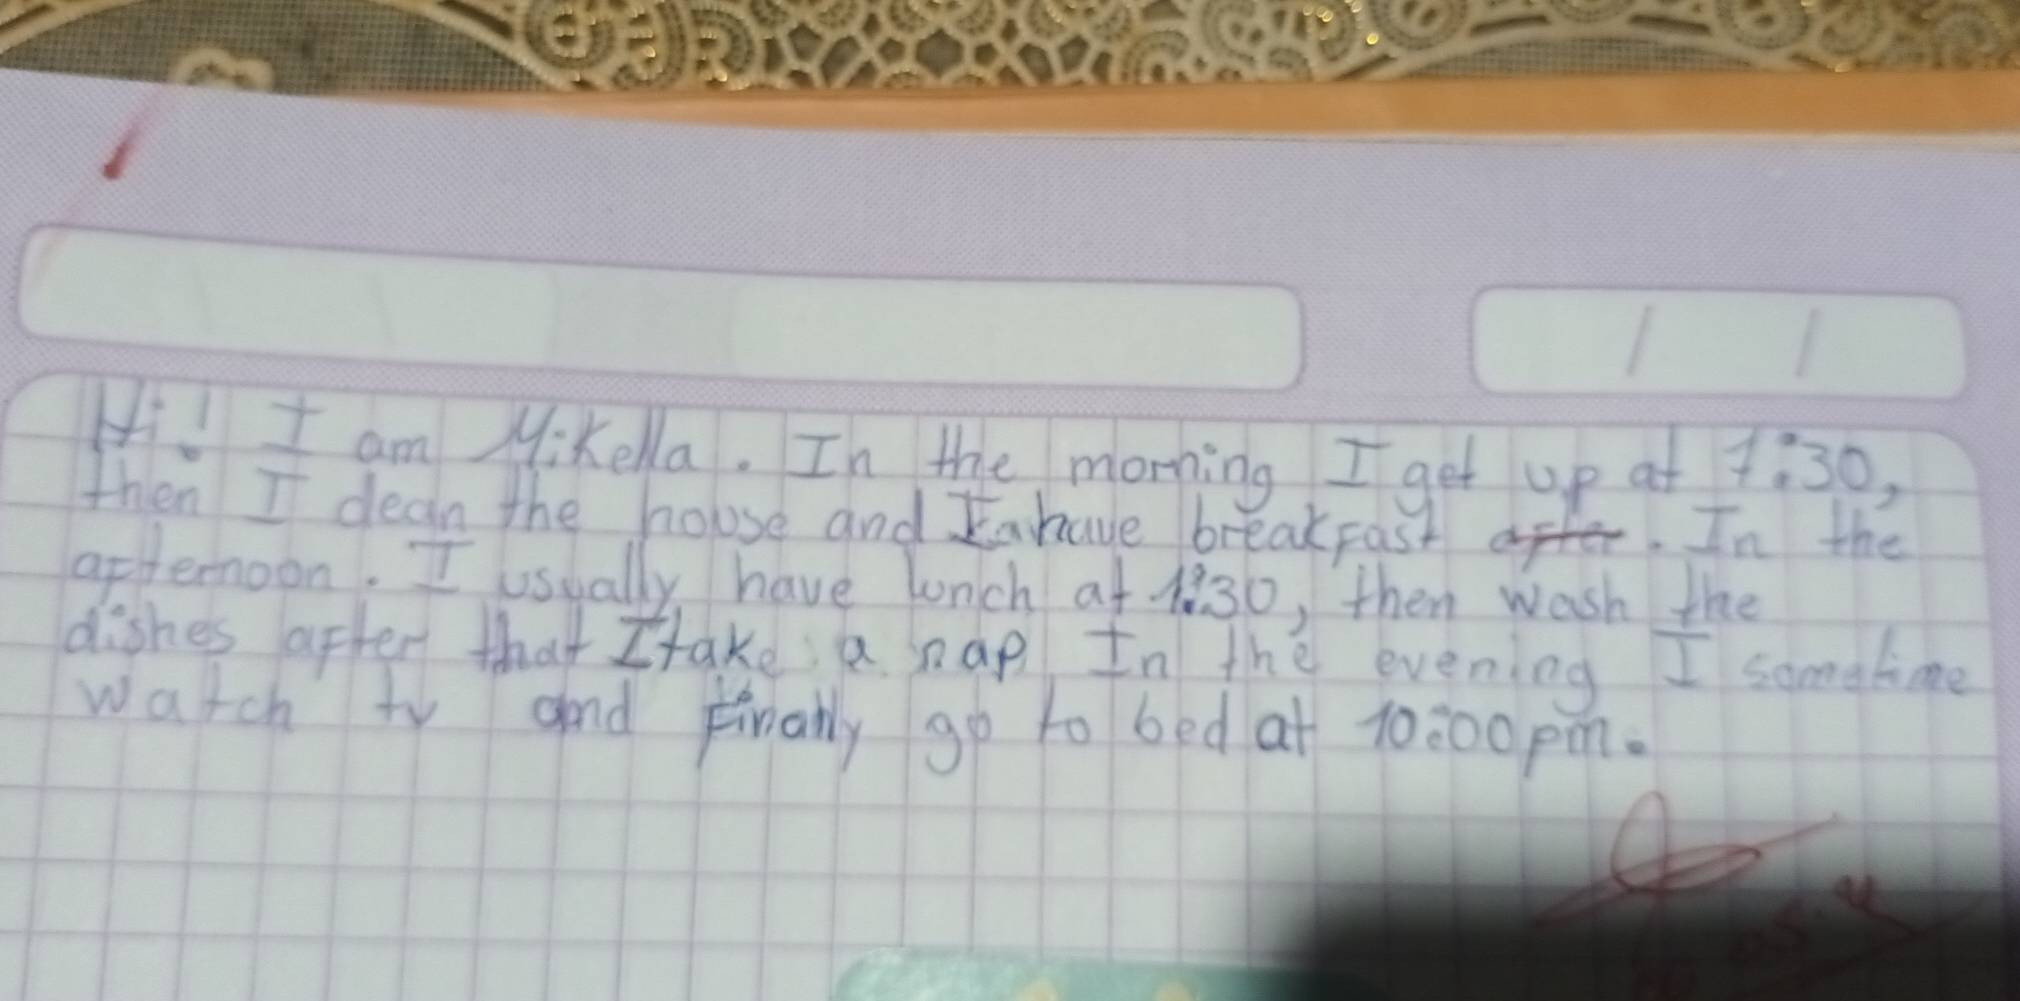 Hi! I am Mikella. In the morning I get up at 7:30,
then I clean the house and I have breakfast after. In the
afternoon. I usually have lunch at 1:30, then wash the
dishes after that I take a nap. In the evening I sometime
watch tv and finally go to bed at 10:00 pm.